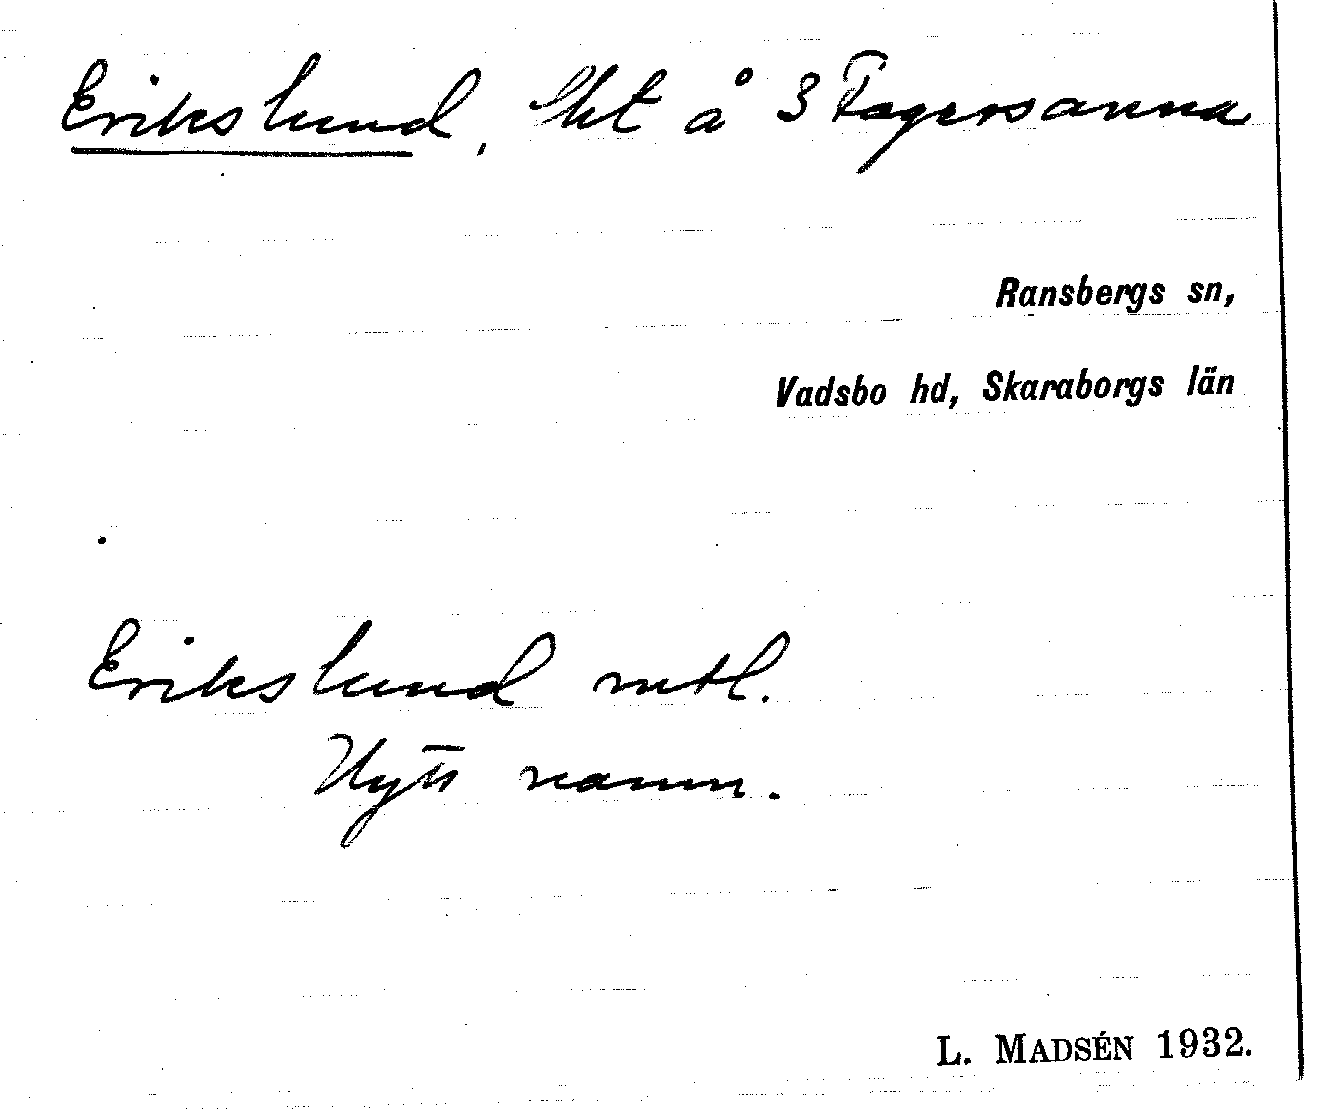 Erikslund, Lht å 3 Fagersanna
Ransbergs sn,
Vadsbo hd, Skaraborgs län
Erikslund mtl.
Nytt namn.
L. MADSÉN 1932.